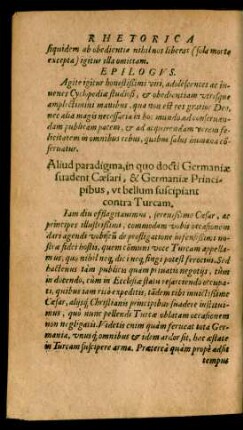 RHETORICA
siquidem ab obedientia nihil nos liberat (sola morte
excepta) igitur illa omittam.
EPILOGVS.
Agite igitur honestissimi viri, adolescentes ac iu-
uenes Cyclopediæ studiosi, & obedientiam vtrisque
amplectimini manibus, qua non est res gratior Deo,
nec alia magis necessaria in hoc mundo ad conseruan-
dam publicam pacem, & ad acquirendam veram fe-
licitatem in omnibus rebus, quibus salus humana con-
seruatur.
Aliud paradigma, in quo docti Germaniæ
suadent Cæsari, & Germaniæ Princi-
pibus, vt bellum suscipiant
contra Turcam.
Iam diu efflagitauimus, serenissime Cæsar, ac
principes illustrissimi, commodam nobis occasionem
dari agendi vobiscum de profligatione infensissimi no-
stræ fidei hostis, quem communi voce Turcam appella-
mus, quo nihil neq, dici neq, fingi potest ferocius. Sed
hactenus tam publicis quàm priuatis negotijs, tùm
in docendo, cùm in Ecclesiæ statu resarciendo occupa-
ti, quibus iam rite expeditis, tandem tibi inuictissime
Cæsar, alijsq́ Christianis principibus suadere institui-
mus, quò nunc pellendi Turcæ oblatam occasionem
non negligatis. Videtis enim quàm ferueat tota Ger-
mania, vnusq́ omnibus & idem ardor sit, hac æstate
in Turcam suscipere arma. Præterea quàm propè adsit
tempus